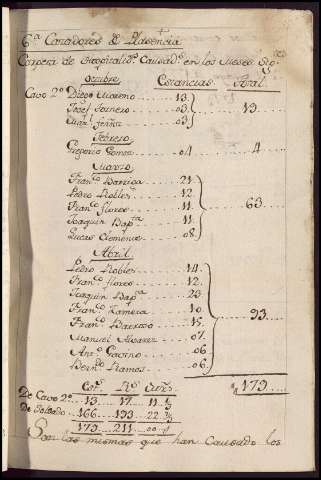 6ª Cazadores de Plasencia
de Hospitalid.s Causad.s en los Meses Sig.tes
Octubre Estancias Total
Cavo 2º Diego Moreno 13
Josef 03 19
03
Febrero
Gregorio Gomez 04 4
Marzo
Fran.co Barriga 21
Pedro Robles 12
Fran.co flores 11 63
Joaquin Bap.ta 11
Lucas Clemente 08
Abril
Pedro Robles 14
Fran.co flores 12
Joaquin Bap.ta 23
Fran.co Zamora 10 93
Fran.co Barroso 15
Manuel Alvarez 07
Ant.º 06
Bern.do Ramos 06
179
De Cavo 2º 13 17 11
De Soldado 166 193 22
179 211 00
Son las mismas que han Causado los